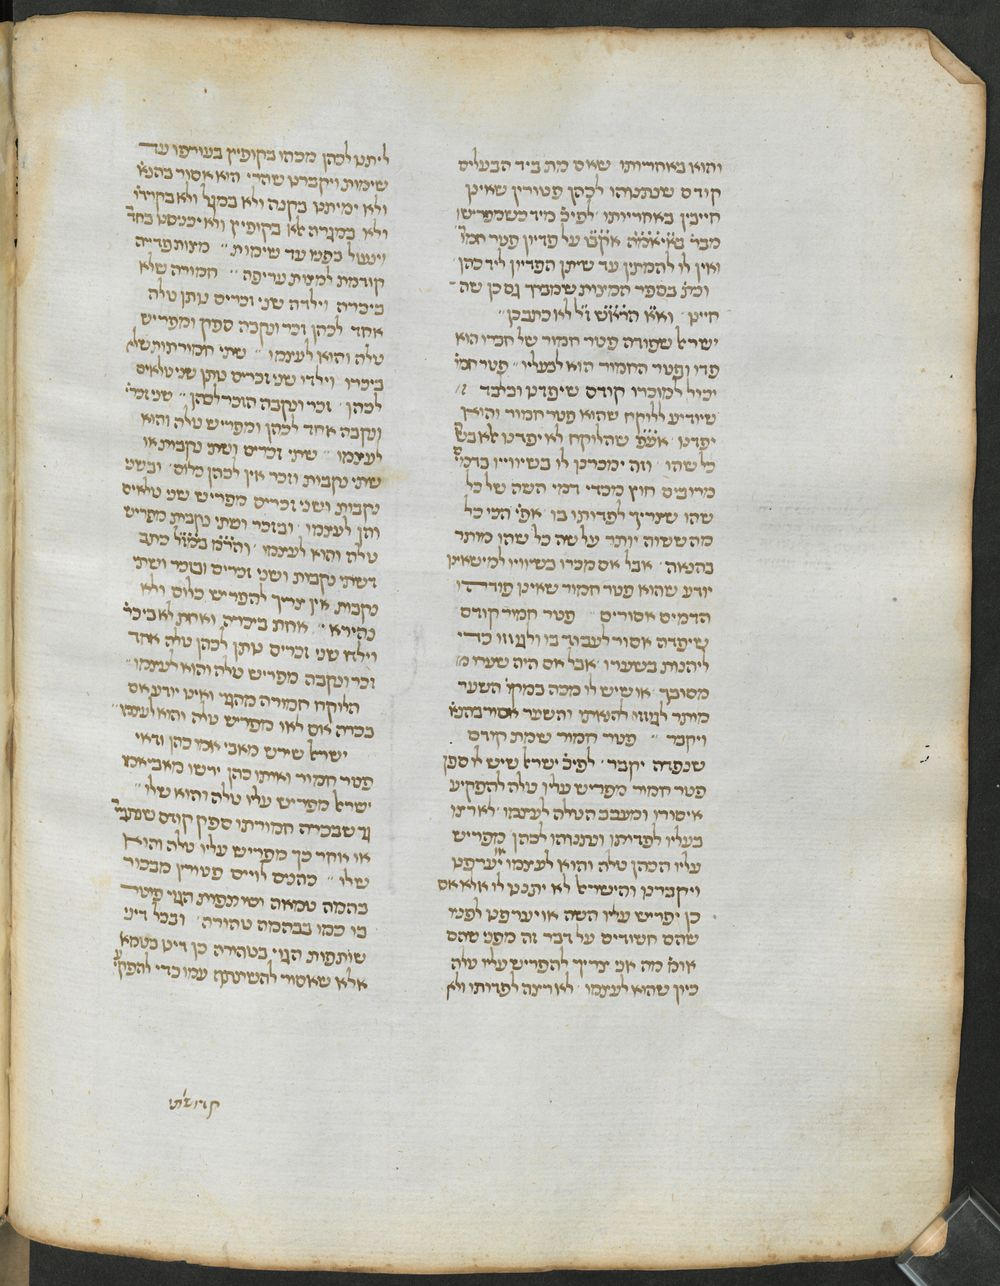 והוא באחריותו שאם מת ביד הבעלים
קודם שנתנוהו לכהן פטורין שאינן
חייבין באחריותו לפיכ מיד כשמפריש
מברך אקב״ו על פדיון פטר חמו׳
ואין לו להמתין עד שיתן הפדיון ליד כהן
וכת׳ בספר המצות שמברך גם כן שה־
חיינו ואא הרא״ש ז״ל לא כתב כן
ישראל שפודה פטר חמור של חבירו הוא
פדו ופטר החמור הוא לבעליו פטר חמו׳
יכול למוכרו קודם שיפדנו ובלבד
שיודיע ללוקח שהוא פטר חמור והוא
יפדנו אע״פ שהלוקח לא יפדנו אלא בש
כל שהו וזה ימכרנו לו בשיוויו בדמי׳
מרובים חוץ מכדי דמי השה של כל
שהו שצריך לפדותו בו אפי׳ הכי כל
מה ששוה יותר על שה כל שהו מותר
בהנאה אבל אם מכרו בשיוויו למי שאינו
יודע שהוא פטר חמור שאינו פודהו
הדמים אסורים פטר חמור קודם
שיפדה אסור לעבוד בו ולגוזזו כדי
ליהנות בשערו אבל אם היה שערו מ
מסובך או שיש לו מכה במקו׳ השער
מותר לגוזזו להנאתו והשער אסור בהנא׳
ויקבר פטר חמור שמת קודם
שנפדה יקבר לפיכ ישראל שיש לו ספק
פטר חמור מפריש עליו טלה להפקיע
איסורו ומעכב הטלה לעצמו לא רצו
בעליו לפדותו ונתנוהו לכהן מפריש
עליו הכהן טלה והוא לעצמו או יערפנו
ויקברנו והישראל לא יתננו לו אלא אם
כן יפריש עליו השה או יערפנו לפניו
שהם חשודים על דבר זה מפני שהם
אומ׳ מה אני צריך להפריש עליו טלה
כיון שהוא לעצמו לא רצה לפדותו ולא
ליתנו לכהן מכהו בקופיץ בעורפו עד
שימות ויקברנו שהרי הוא אסור בהנא׳
ולא ימיתנו בקנה ולא במגל ולא בקורדו׳
ולא במגרה אלא בקופיץ ולא יכניסנו בחד׳
וינעול בפניו עד שימות מצות פדייה
קודמת למצות עריפה חמורה שלא
ביכרה וילדה שני זכרים נותן טלה
אחד לכהן זכר ונקבה ספק ומפריש
טלה והוא לעצמו שתי חמורתות שלא
ביכרו וילדו שני זכרים נותן שני טלאים
לכהן זכר ונקבה הזכר לכהן שני זכרי׳
ונקבה אחד לכהן ומפריש טלה והוא
לעצמו שתי זכרים ושתי נקבות או
שתי נקבות וזכר אין לכהן כלום ובשני
נקבות ושני זכרים מפריש שני טלאים
והן לעצמו ובזכר ושתי נקבות מפריש
טלה והוא לעצמו והר״מ במז״ל כתב
דשתי נקבות ושני זכרים ובזכר ושתי
נקבות אין צריך להפריש כלום ולא
נהירא אחת ביכרה ואחת לא ביכרה
וילדו שני זכרים נותן לכהן טלה אחד
זכר ונקבה מפריש טלה והוא לעצמו
הלוקח חמורה מהגוי ואינו יודע אם
בכרה אם לאו מפריש טלה והוא לעצמו
ישראל שירש מאבי אמו כהן ודאי
פטר חמור ואותו כהן ירשו מאבי אמו
ישראל מפריש עליו טלה והוא שלו
גר שבכרה חמורתו ספק קודם שנתגייר
או אחר כך מפריש עליו טלה והוא
שלו כהנים לויים פטורין מבכור
בהמה טמאה ושותפות הגוי פוטר
בו כמו בבהמה טהורה ובכל דיני
שותפות הגוי בטהורה כן דינו בטמא׳
אלא שאסור להשתתף עמו כדי להפקיע